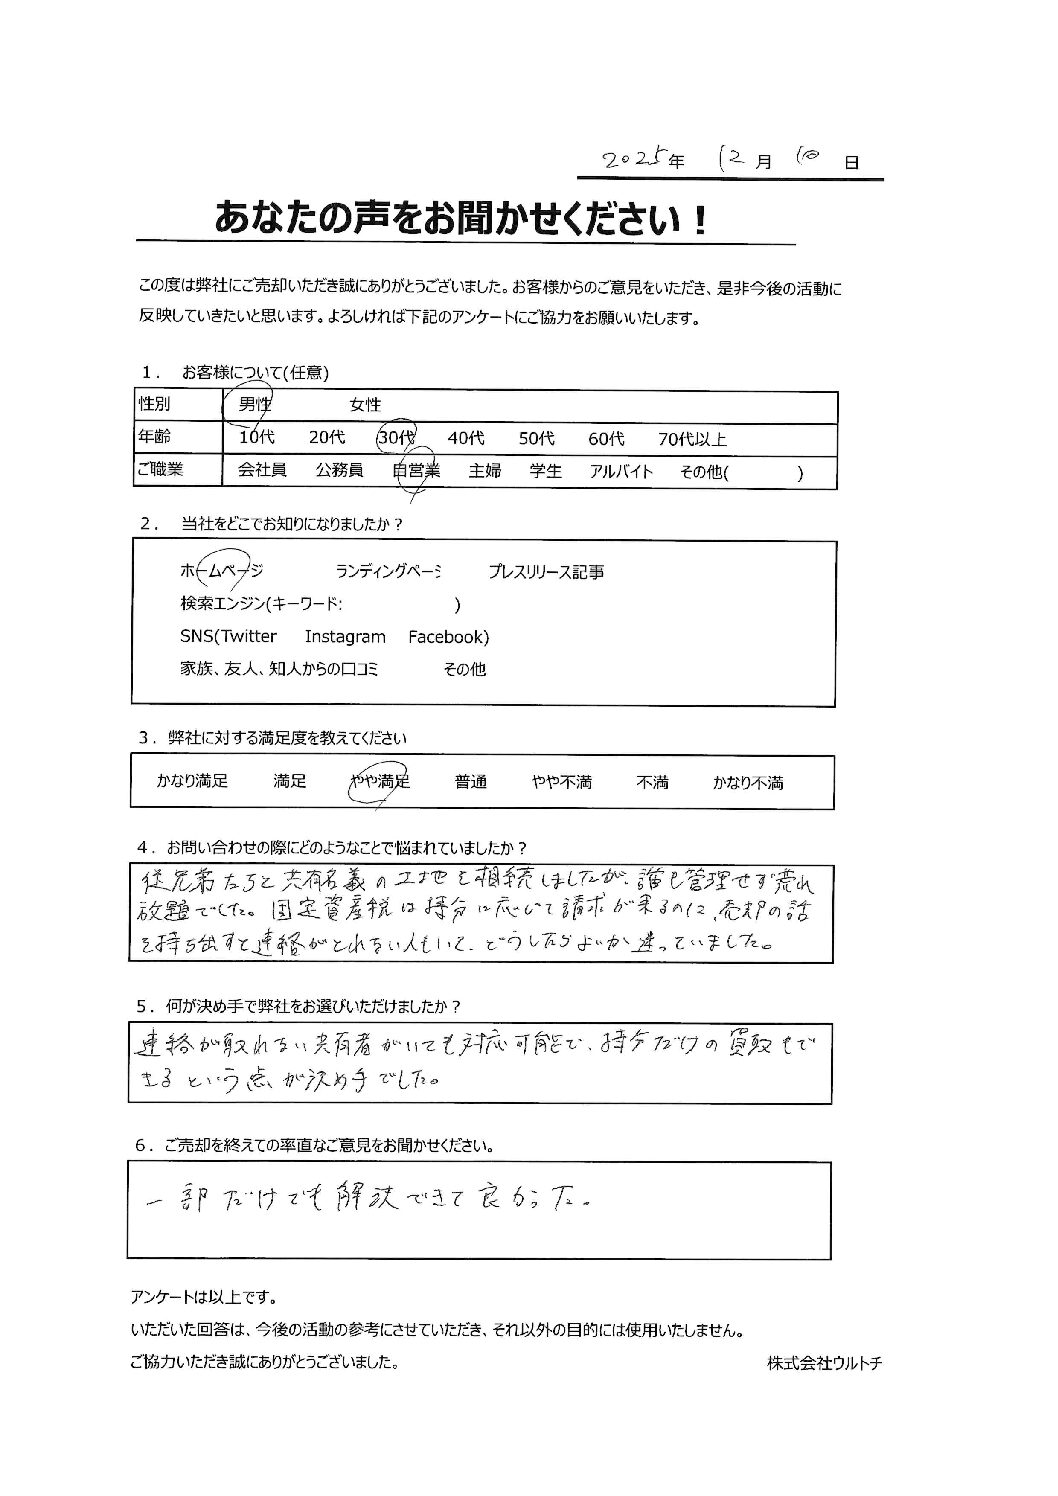 2025年 12月 10日
あなたの声をお聞かせください！
この度は弊社にご売却いただき誠にありがとうございました。お客様からのご意見をいただき、是非今後の活動に
反映していきたいと思います。よろしければ下記のアンケートにご協力をお願いいたします。
1． お客様について(任意)
性別 男性 女性
年齢 10代 20代 30代 40代 50代 60代 70代以上
ご職業 会社員 公務員 自営業 主婦 学生 アルバイト その他( )
2． 当社をどこでお知りになりましたか？
ホームページ ランディングページ プレスリリース記事
検索エンジン(キーワード: )
SNS(Twitter Instagram Facebook)
家族、友人、知人からの口コミ その他
3．弊社に対する満足度を教えてください
かなり満足 満足 やや満足 普通 やや不満 不満 かなり不満
4．お問い合わせの際にどのようなことで悩まれていましたか？
従兄弟たちと共有名義の土地を相続しましたが、誰も管理せず荒れ
放題でした。固定資産税は持分に応じて請求が来るのに、売却の話
を持ち出すと連絡がとれない人もいて、どうしたらよいか迷っていました。
5．何が決め手で弊社をお選びいただけましたか？
連絡が取れない共有者がいても対応可能で、持分だけの買取もで
きるという点が決め手でした。
6．ご売却を終えての率直なご意見をお聞かせください。
一部だけでも解決できて良かった。
アンケートは以上です。
いただいた回答は、今後の活動の参考にさせていただき、それ以外の目的には使用いたしません。
ご協力いただき誠にありがとうございました。 株式会社ウルトチ